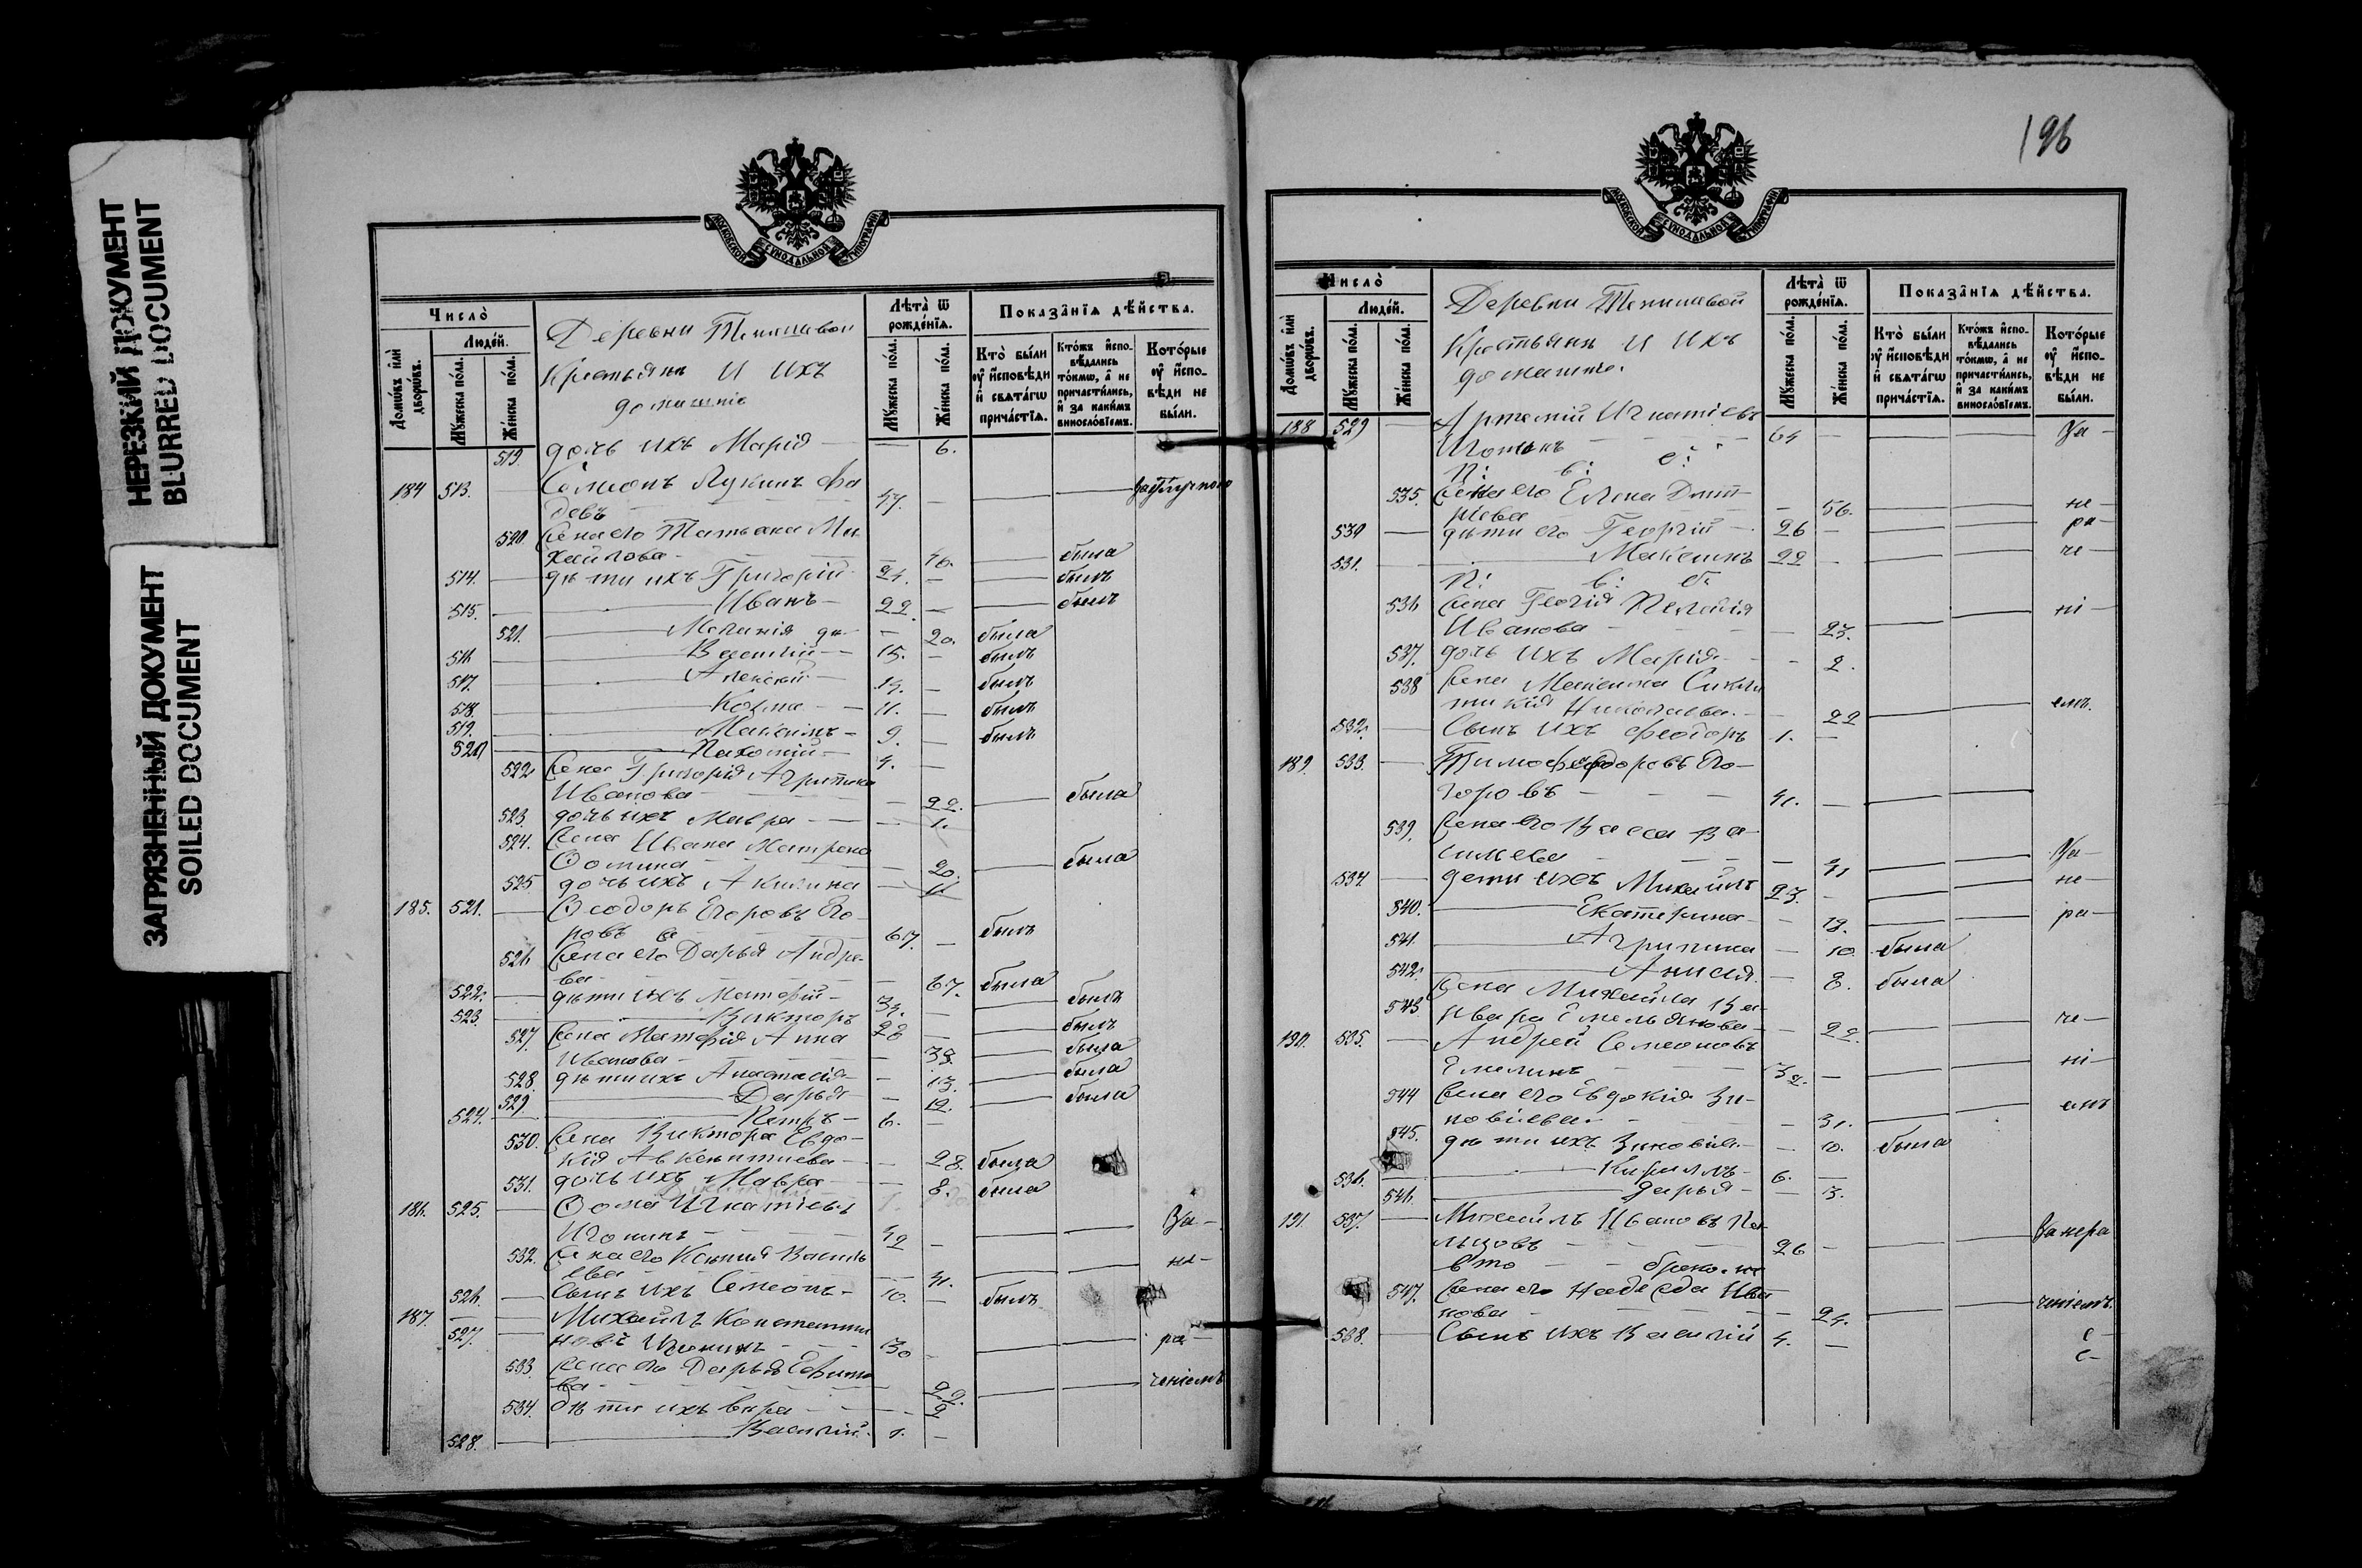 НЕРЕЗКИЙ ДОКУМЕНТ
BLURRED DOCUMENT
ЗАГРЯЗНЕННЫЙ ДОКУМЕНТ
SOILED DOCUMENT
МОСКОВСКОЙ СУНОДАЛЬНОЙ ТИПОГРАФІИ
Число̀
Домѡ́въ и҆лѝ дворѡ́въ.
Люде́й.
Мꙋ́жеска по́ла.
Же́нска по́ла.
Деревни
Крестьянъ и ихъ
домашніе
Лѣта̀ ѿ рожде́нїѧ.
Мꙋ́жеска по́ла.
Же́нска по́ла.
Показа̑нїѧ дѣ́йства.
Кто̀ бы́ли оу҆ и҆сповѣ́ди и҆ свѧта́гѡ прича́стїѧ.
Кто́жъ и҆спо-вѣ́дались то́кмѡ, а҆ не причасти́лись, и҆ за каки́мъ винослѻ́вїемъ.
Кото́рые оу҆ и҆спо-вѣ́ди не бы́ли.
519. дочь ихъ Марія — 6.
184 513. Симеонъ Лукинъ
довъ 47. —
520 Жена его Татьяна Ми
хайлова — была
514. — дѣти ихъ Григорій 24. — былъ
515. Иванъ — 22 — былъ
521. Меланія — 20. была
516 Василій — 15. — былъ
517. Алексій — 14. — былъ
518. Козма — 11. — былъ
519. Максимъ — 9. — былъ
520 Пахомій — 4. —
522 Жена Григорія Агрипина
Иванова — 22. — была
523. дочь ихъ Мавра — 1.
524. Жена Ивана Матрона
Ѳомина — 20. — была
525 дочь ихъ Акилина
185. 521. — Ѳеодоръ Егоровъ Его-
ровъ 67. — былъ
526 Жена его Дарья Андре-
ва — 67. была
522. — дѣти ихъ 34. — былъ
523. Викторъ 28 — былъ
527. Жена Анна
Иванова — 38. — была
528. дѣти ихъ Анастасія — 13. — была
529. Дарья — 12. — была
524. Петръ — 6. —
530. Жена Виктора Евдо-
кія — 28. была
531. дочь ихъ Мавра — 8. была
186. 525. — Ѳома Игнатіевъ
42 — За-
532. Жена его Ксенія Василь
ева — 41. — не-
526. — Сынъ ихъ Симеонъ — 10. — былъ
187. 527. — Михаилъ Константи
новъ 30 — ра-
533 Жена его Дарья Ефимо
ва — 22. — ченіемъ
534. дѣти ихъ Вѣра — 2
528. Василій. 1. —
196
МОСКОВСКОЙ СУНОДАЛЬНОЙ ТИПОГРАФІИ
Число̀
Домѡ́въ и҆лѝ дворѡ́въ.
Люде́й.
Мꙋ́жеска по́ла.
Же́нска по́ла.
Деревни
Крестьянъ и ихъ
домашніе.
Лѣта̀ ѿ рожде́нїѧ.
Мꙋ́жеска по́ла.
Же́нска по́ла.
Показа̑нїѧ дѣ́йства.
Кто̀ бы́ли оу҆ и҆сповѣ́ди и҆ свѧта́гѡ прича́стїѧ.
Кто́жъ и҆спо-вѣ́дались то́кмѡ, а҆ не причасти́лись, и҆ за каки́мъ винослѻ́вїемъ.
Кото́рые оу҆ и҆спо-вѣ́ди не бы́ли.
188 529 — Артемій Игнатіевъ
64 — За-
п: в: б:
535. Жена его Елена Дмит-
ріева — 56. — не-
530 — дѣти его Георгій — 26 — ра-
531. Максимъ 22 — че-
п: в: б.
536 Жена Георгія Пелагія
Иванова — 23. — ні-
537. дочь ихъ Марія — 2.
538 Жена Максима Синкли
тикія Николаева — 22 — емъ.
532. — Сынъ ихъ Ѳеодоръ 1. —
189. 533. — Его-
горовъ 41. —
539. Жена его Васса Ва-
сильева — 41 — За-
534 — дети ихъ Михаилъ 23. — не-
540. Екатерина — 19. — ра-
541. Агрипина — 10. была
542. Анисія — 8. была
543 Жена Михаила Вар-
вара Емельянова — 22. — че-
190. 535. — Андрей Семеоновъ
Емелинъ 32. — ні-
544 Жена его Евдокія Зи-
новіева — 31. — емъ
545. дѣти ихъ Зиновія — 10. была
536. Кириллъ — 6. —
546. Дарья — 3.
191. 537. — Михаилъ Ивановъ
26 — Занера
547. Жена его Надежда Ива
нова — 24. — ченіемъ.
538. — Сынъ ихъ Василій 4. —